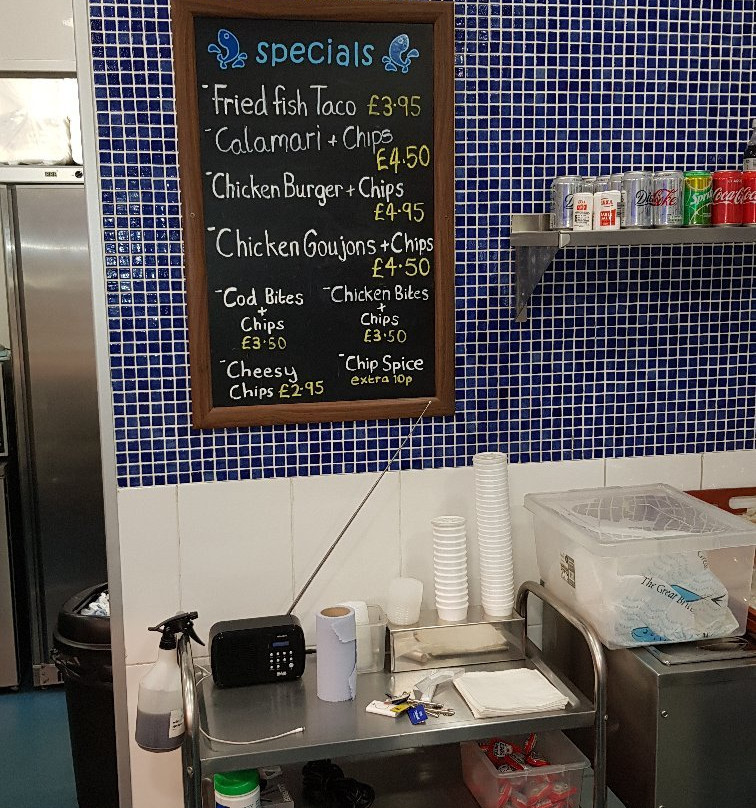 specials
-Fried fish Taco £3.95
-Calamari + Chips
£4.50
-Chicken Burger + Chips
£4.95
-Chicken Goujons + Chips
£4.50
-Cod Bites
+
Chips
£3.50
-Chicken Bites
+
Chips
£3.50
-Cheesy
Chips £2.95
-Chip Spice
extra 10p
Coke
Sprite
Coca-Cola
The Great Bri